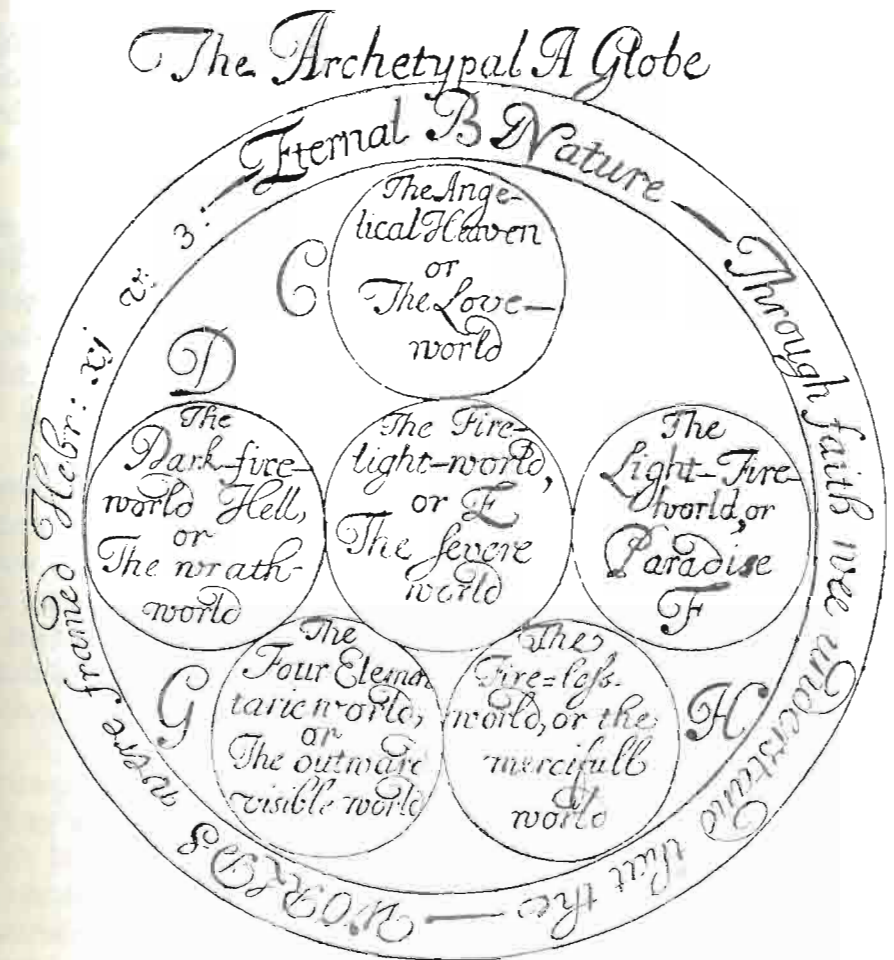 The Archetypal A Globe
Eternal B Nature — Through faith wee understand that the — WORLDS were framed Hebr: xj v: 3: —
C
The Ange-
lical Heaven
or
The Love-
world
D
The
Dark-fire-
world Hell,
or
The wrath-
world
The Fire-
light-world,
or E
The severe
world
The
Light-Fire-
world, or
Paradise
F
G
The
Four Elemen
taric world,
or
The outward
visible world
The
Fire=less-
world, or the
mercifull
world
H